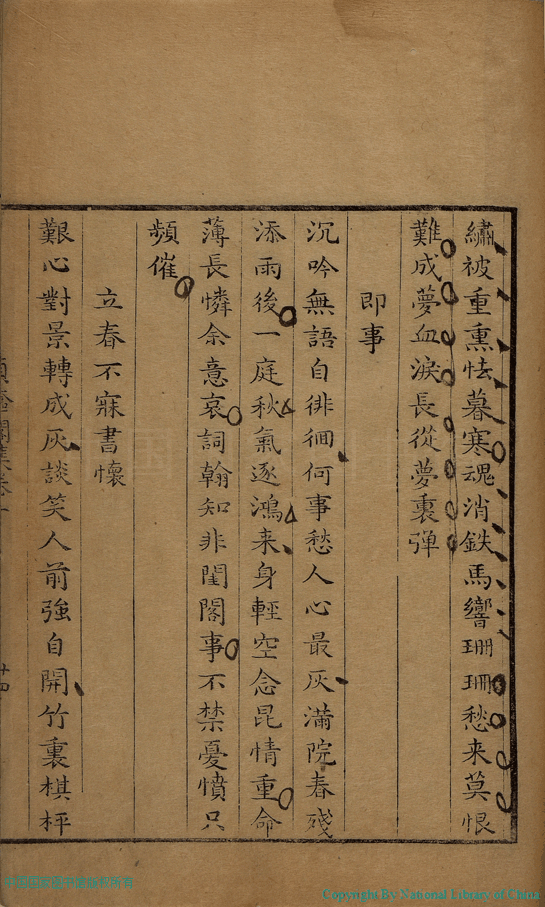 繡被重熏怯暮寒魂消鉄馬響珊珊愁来莫恨
難成夢血淚長從夢裏弹
即事
沉吟無語自徘徊何事愁人心最灰滿院春殘
添雨後一庭秋氣逐鴻来身輕空念昆情重命
薄長憐余意哀詞翰知非閨閣事不禁憂憤只
頻催
立春不寐書懷
艱心對景轉成灰談笑人前強自開竹裏棋枰
十四
Copyright By National Library of China